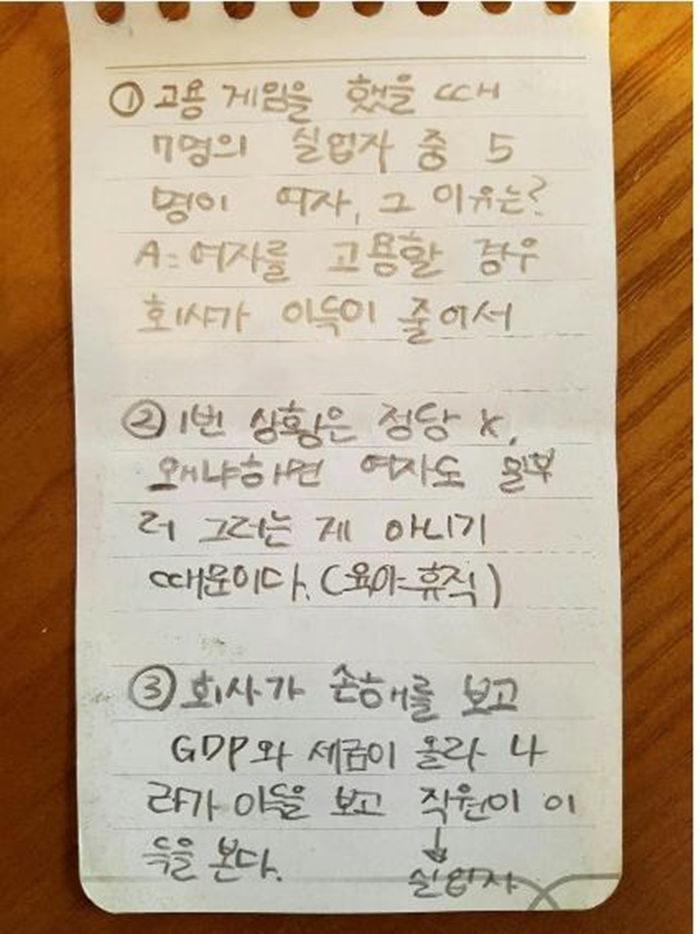 ① 고용 게임을 했을 때
7명의 실업자 중 5
명이 여자, 그 이유는?
A=여자를 고용할 경우
회사가 이득이 줄어서
② 1번 상황은 정당 X,
왜냐하면 여자도 일부
러 그러는 게 아니기
때문이다. (육아휴직)
③ 회사가 손해를 보고
GDP와 세금이 올라 나
라가 이득을 보고 직원이 이
득을 본다. ↓
실업자